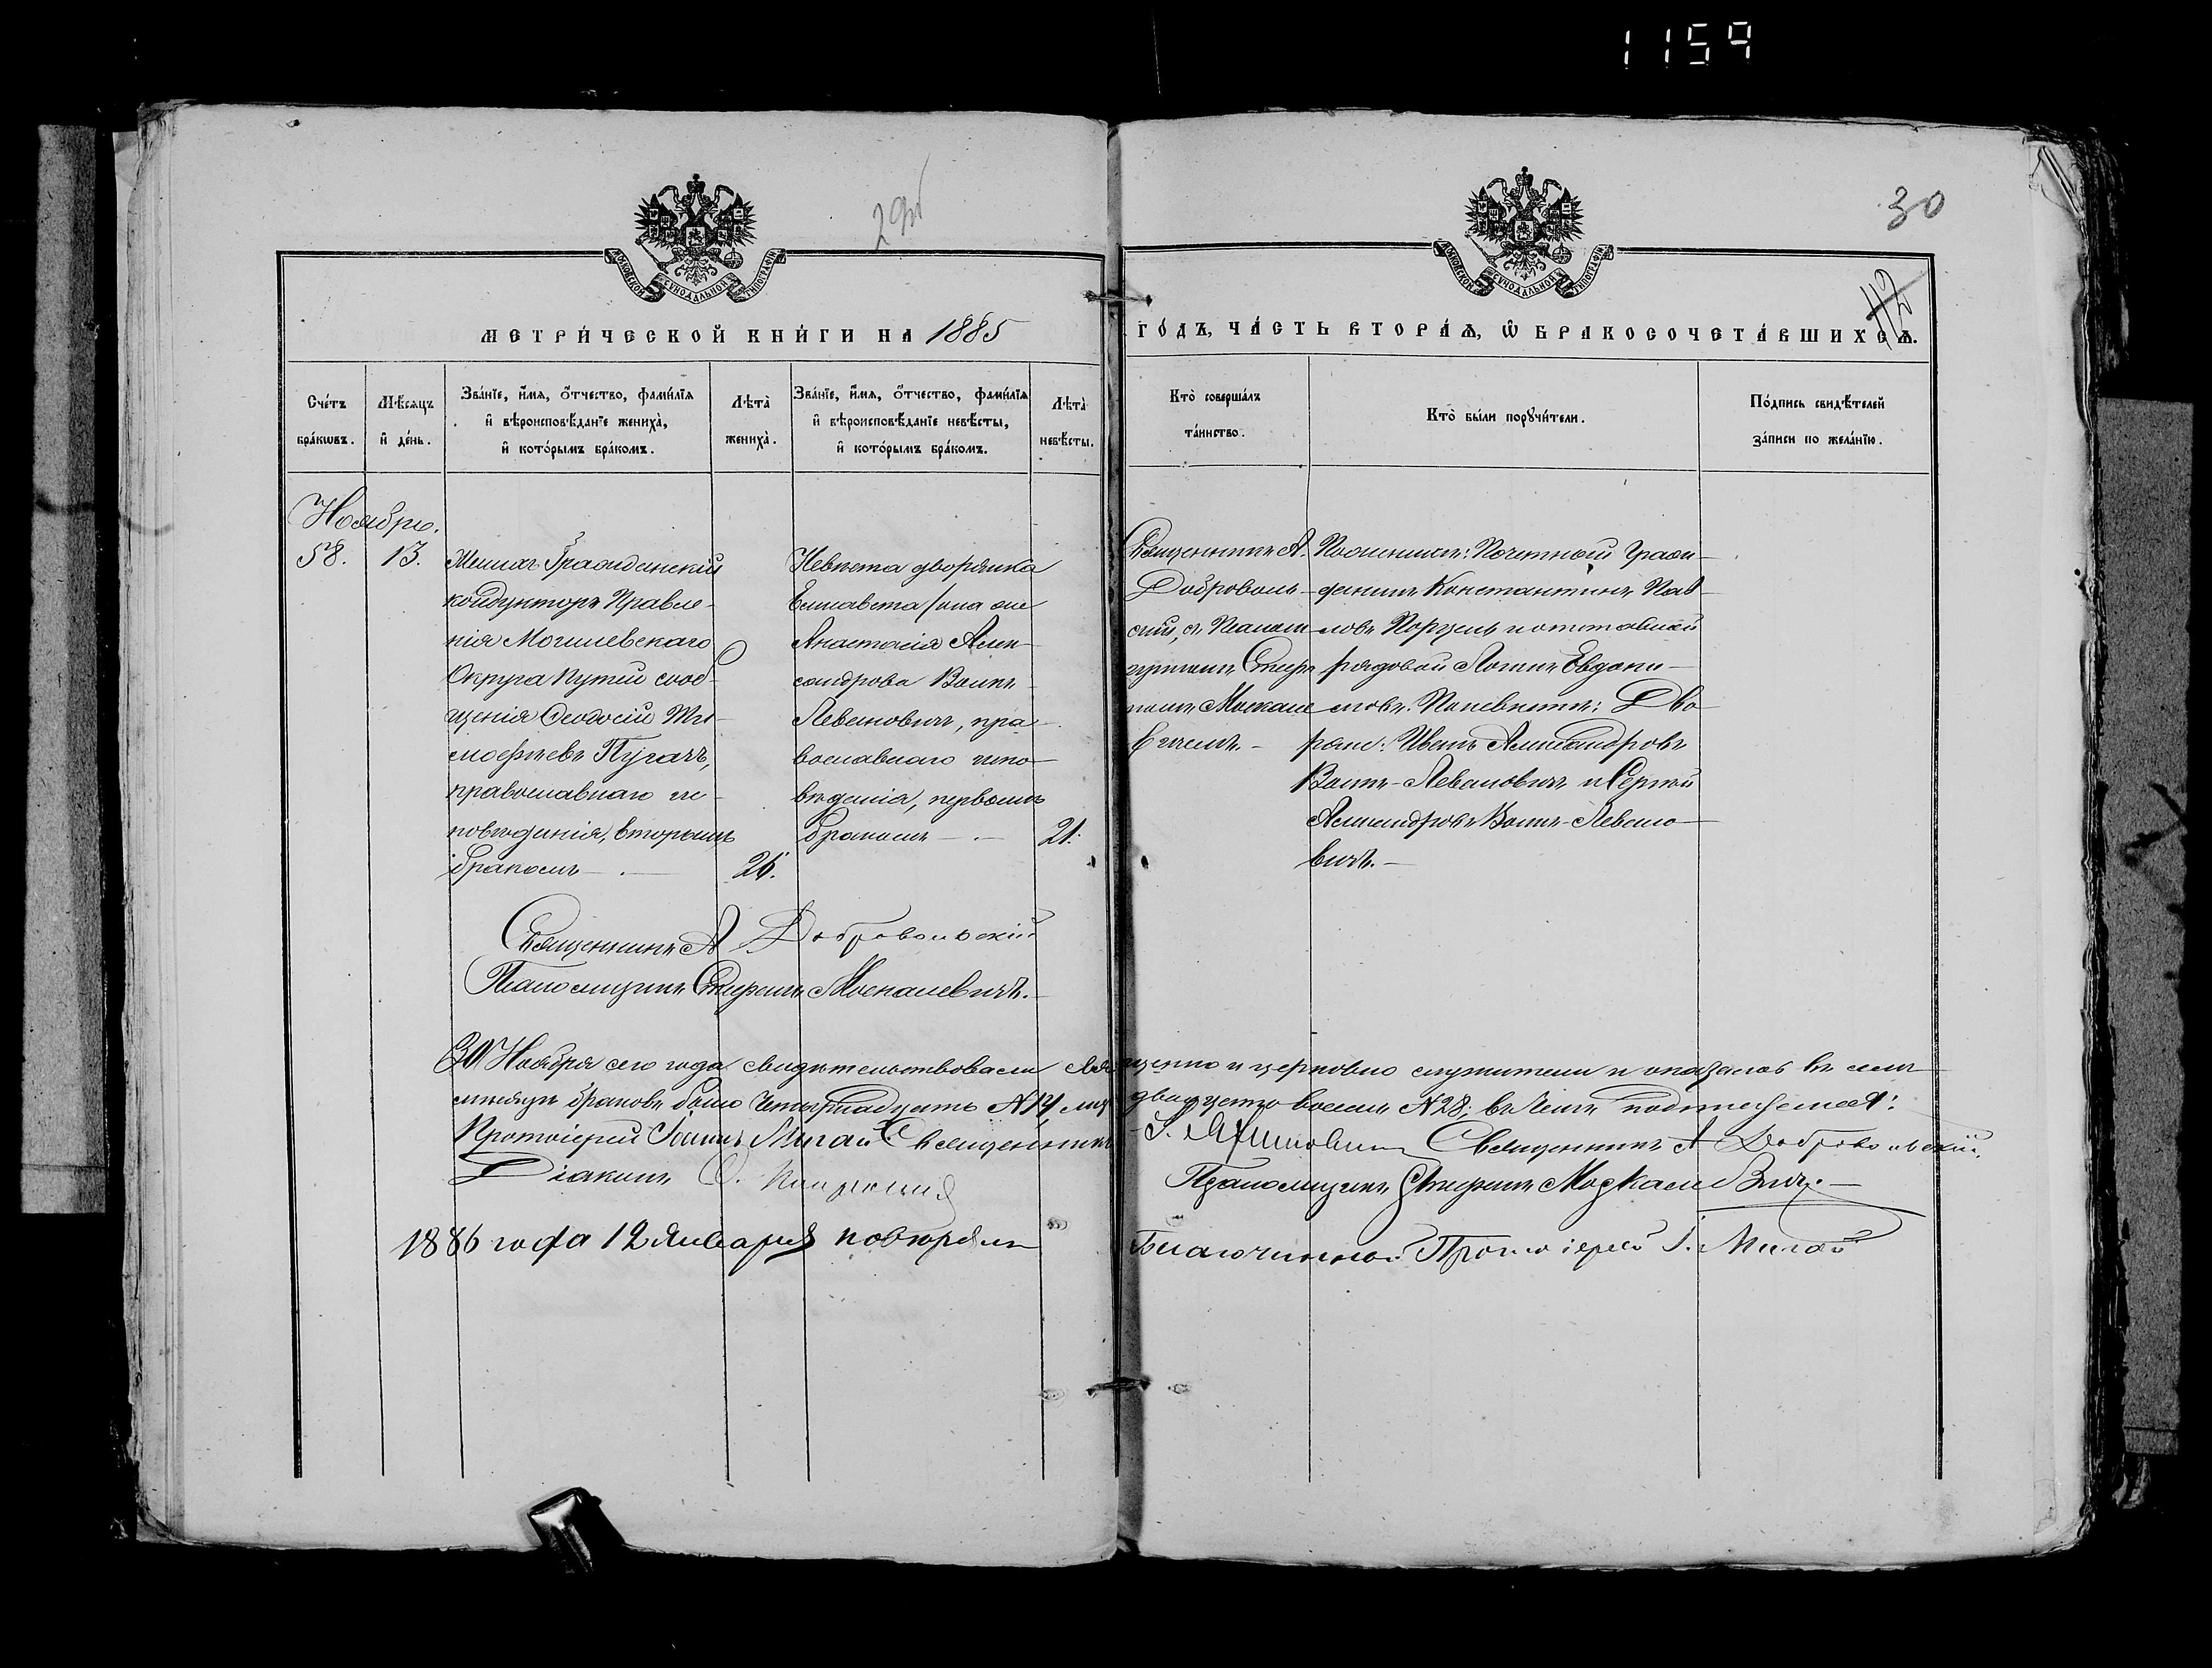 1159
30
МОСКОВСКОЙ СѴНОДАЛЬНОЙ ТИПОГРАФІИ
МОСКОВСКОЙ СѴНОДАЛЬНОЙ ТИПОГРАФІИ
112
МЕТРИ́ЧЕСКОЙ КНИ́ГИ НА 1885
ГО́ДЪ, ЧА́СТЬ ВТОРА́Ѧ, Ѿ БРАКОСОЧЕТА́ВШИХСѦ.
Сче́тъ бра́кѡвъ.
Мѣ́сѧцъ и҆ де́нь.
Зва́нїе, и҆́мѧ, ѻ҆́тчество, фами́лїѧ и҆ вѣроисповѣ́данїе жениха̀, и҆ кото́рымъ бра́комъ.
Лѣта̀ жениха̀.
Зва́нїе, и҆́мѧ, ѻ҆́тчество, фами́лїѧ и҆ вѣроисповѣ́данїе невѣ́сты, и҆ кото́рымъ бра́комъ.
Лѣта̀ невѣ́сты.
Кто̀ соверша́лъ та́инство.
Кто̀ бы́ли порꙋчи́тели.
По́дпись свидѣ́телей за́писи по жела́нїю.
Ноябрь.
58.
13.
Женихъ Гражданскій
кондукторъ Правле-
нія Могилевскаго
Округа Путей сооб-
щенія Ѳеодосій Ти-
моѳеевъ Пугачъ,
православнаго ис-
повѣданія, вторымъ
бракомъ
26.
Невѣста дворянка
Елисавета /она же
Анастасія Алек-
сандрова Воинъ-
Левановичъ, пра-
вославнаго испо-
вѣданія, первымъ
бракомъ
21.
Священникъ А.
Доброволь-
скій, съ Псалом-
щикомъ Спири-
номъ Москале-
вичемъ.
По женихѣ: Почетный Граж-
данинъ Константинъ Пав-
ловъ и отставной
рядовой Евдоки-
мовъ. По невѣстѣ: Дво-
ряне: Иванъ Александровъ
Воинъ-Левановичъ и Сергѣй
Александровъ Воинъ-Левано-
вичъ.
Священникъ А Добровольскій
Псаломщикъ Москалевичъ.
30 Ноября сего года свидѣтельствовали священно и церковно служители и оказалось въ семъ
мѣсяцѣ браковъ было Четырнадцать №14, лицъ двадцать восемь №28; въ чемъ подписуемся:
Протоіерей Іоаннъ Мигай Священникъ Священникъ А Добровольскій.
Діаконъ Псаломщикъ Москалевичъ.
1886 года 12 Января повѣрялъ Благочинный Протоіерей І. Мигай